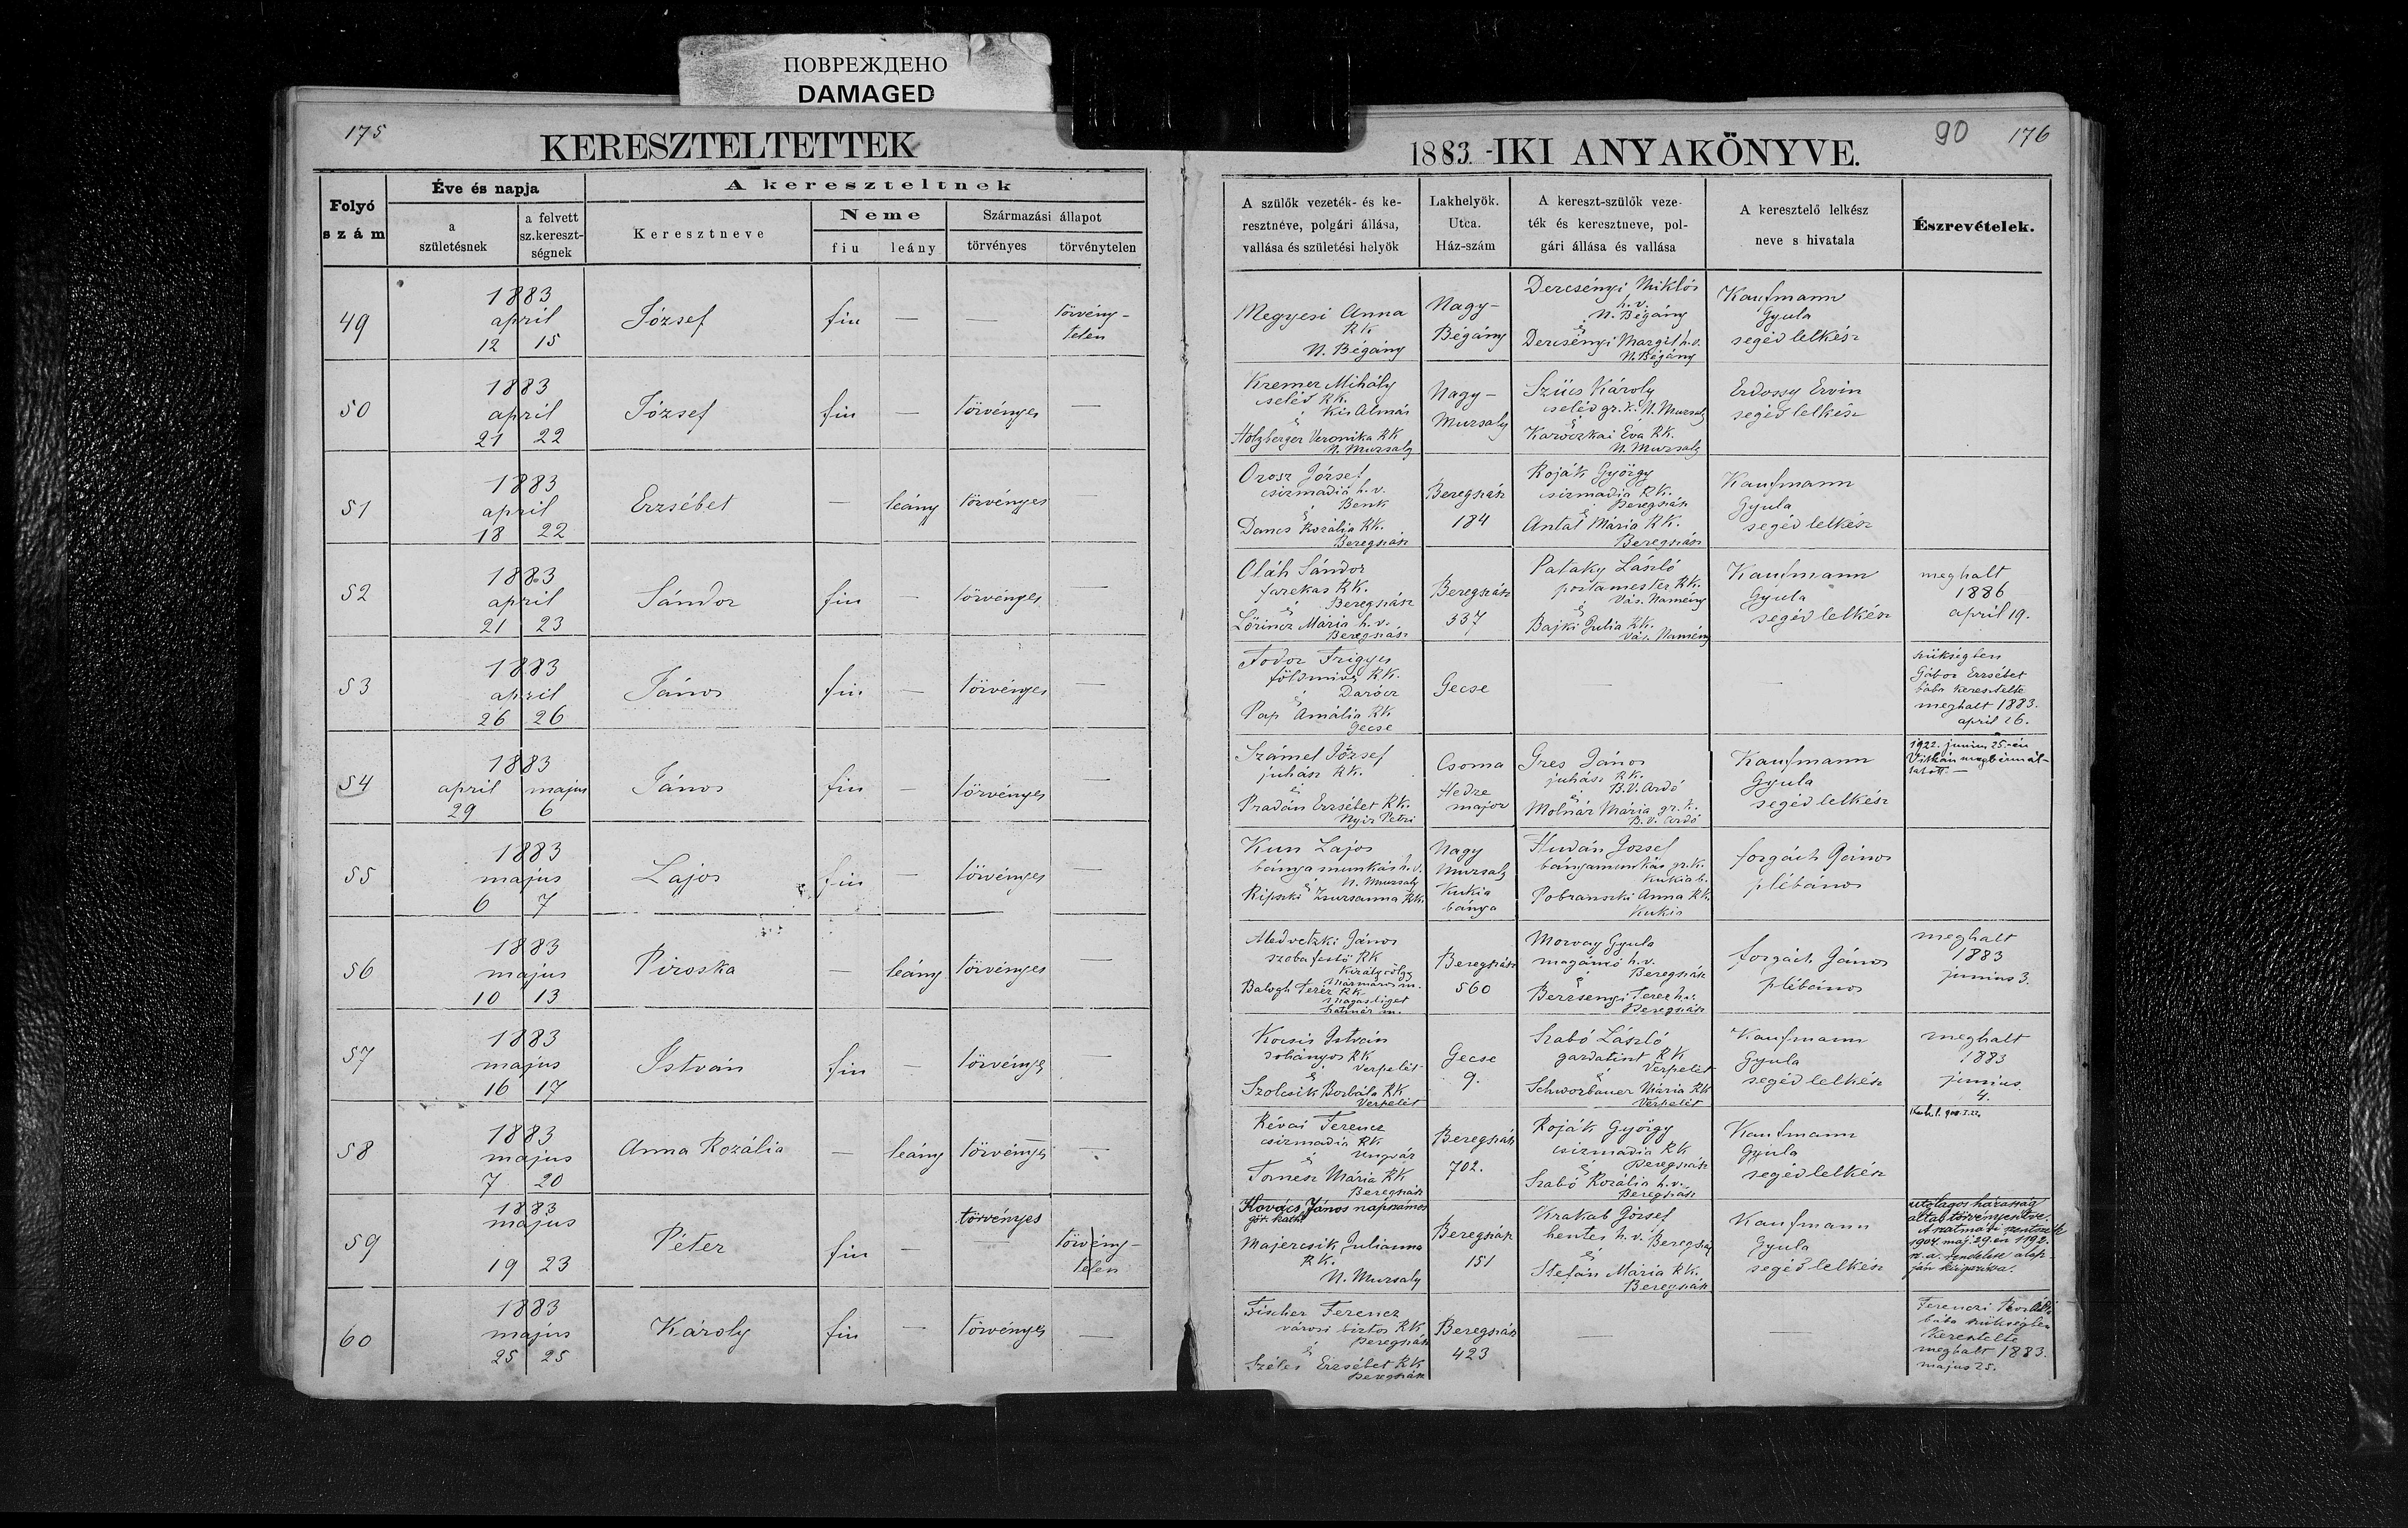 ПОВРЕЖДЕНО
DAMAGED
175
KERESZTELTETTEK
Folyó
szám
Éve és napja
a
születésnek
a felvett
sz.kereszt-
ségnek
A kereszteltnek
Keresztneve
Neme
fiu
leány
Származási állapot
törvényes
törvénytelen
90
176
1883.-IKI ANYAKÖNYVE.
A szülők vezeték- és ke-
resztnéve, polgári állása,
vallása és születési helyök
Lakhelyök.
Utca.
Ház-szám
A kereszt-szülők veze-
ték és keresztneve, pol-
gári állása és vallása
A keresztelő lelkész
neve s hivatala
Észrevételek.
49
1883
april
12 15
József
fiu
—
—
törvény-
telen
Megyesi Anna
RK
N. Bégány
Nagy-
Bégány
Dercsényi Miklós
h.v.
N. Bégány
é
Dercsényi Margit h.v.
N. Bégány
Kaufmann
Gyula
segéd lelkész
50
1883
april
21 22
József
fiu
—
törvényes
—
Kremer Mihály
cseléd RK.
Kis Almás
é
Holzberger Veronika RK
N. Muzsaly
Nagy-
Muzsaly
Szücs Károly
cseléd gr. k. N. Muzsaly
é
Karóczkai Éva RK.
N. Muzsaly
Erdossy Ervin
segéd lelkész
51
1883
april
18 22
Erzsébet
—
leány
törvényes
—
Orosz József
csizmadia h.v.
Benk
é
Dancs Rozália RK.
Beregszász
Beregszász
184
Roják György
csizmadia RK.
Beregszász
é
Antal Mária RK.
Beregszász
Kaufmann
Gyula
segéd lelkész
52
1883
april
21 23
Sándor
fiu
—
törvényes
—
Oláh Sándor
farekas RK.
é Beregszász
Lőrincz Mária h.v.
Beregszász
Beregszász
337
Pataky László
postamester RK.
Vás. Namény
é
Bajki Julia RK.
Vás. Namény
Kaufmann
Gyula
segéd lelkész
meghalt
1886
april 19.
53
1883
april
26 26
János
fiu
—
törvényes
—
Fodor Frigyes
földmives RK.
é Darócz
Pap Amália RK
Gecse
Gecse
—
—
szükségben
Gábor Erzsébet
bába keresztelte
meghalt 1883.
april 26.
54
1883
april május
29 6
János
fiu
—
törvényes
—
Számel József
juhász RK.
é
Pradán Erzsébet RK.
Nyir Petri
Csoma
Hedre
major
Gres János
juhász RK.
B.V. Ardó
é
Molnár Mária gr. k.
B. v. Ardó
Kaufmann
Gyula
segéd lelkész
1922. junius 25.-én
Vitkán megbérmál-
tatott.—
55
1883
május
6 7
Lajos
fiu
—
törvényes
—
Kun Lajos
bánya munkás h.v.
é N. Muzsaly
Ripszki Zsuzsanna RK.
Nagy
Muzsaly
Kukia
bánya
Hudán József
bányamunkás gr. k.
Kukia b.
Pobranszki Anna RK.
Kukia
forgách János
plébános
56
1883
május
10 13
Piroska
—
leány
törvényes
—
Medvetzki János
szobafestő RK
Királyvölgy
Mármaros m.
Balogh Teréz RK
Magasliget
Szatmár m.
Beregszász
560
Morvay Gyula
magánzó h.v.
é Beregszász
Berzsenyi Teréz h.v.
Beregszász
forgách János
plébános
meghalt
1883
junius 3.
57
1883
május
16 17
István
fiu
—
törvényes
—
Kocsis István
dohányos RK
é Verpelét
Szolcsik Borbála RK
Verpelét
Gecse
9.
Szabó László
gazdatiszt RK
Verpelét
é
Schworbauer Mária RK
Verpelét
Kaufmann
Gyula
segéd lelkész
meghalt
1883
junius
4.
58
1883
május
7 20
Anna Rozália
—
leány
törvényes
—
Révai Ferencz
csizmadia RK
é Ungvár
Tornesz Mária RK
Beregszász
Beregszász
702.
Roják György
csizmadia RK
é Beregszász
Szabó Rozália h.v.
Beregszász
Kaufmann
Gyula
segéd lelkész
59
1883
május
19 23
Péter
fiu
—
törvényes
—
törvény-
telen
Kovács János napszámos
gör. kath.
Majercsik Julianna
RK.
N. Muzsaly
Beregszász
151
Krakab József
hentes h.v. Beregszász
é
Stefán Mária RK.
Beregszász
Kaufmann
Gyula
segéd lelkész
utólagos házasság
által törvényesítve.
A szatmári szentszék
1904. máj. 29.en 1192.
sz. a. rendelete alap-
ján kiigazítva.
60
1883
május
25 25
Károly
fiu
—
törvényes
—
Fischer Ferencz
városi biztos RK
Beregszász
é
Széles Erzsébet RK
Beregszász
Beregszász
423
—
—
Ferenczi
bába szükségben
keresztelte
meghalt 1883.
május 25.